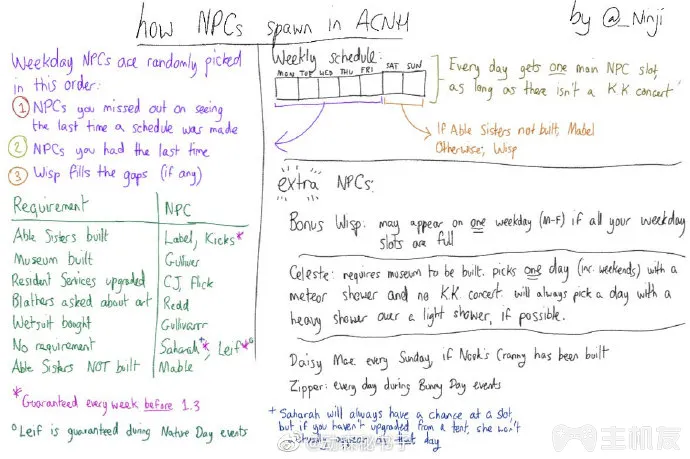 how NPCs spawn in ACNH
by @_Ninji
Weekday NPCs are randomly picked
in this order:
1 NPCs you missed out on seeing
the last time a schedule was made
2 NPCs you had the last time
3 Wisp fills the gaps (if any)
Requirement NPC
Able Sisters built Label, Kicks*
Museum built Gulliver
Resident Services upgraded CJ, Flick
Blathers asked about art Redd
Wetsuit bought Gullivarrr
No requirement Saharah+*, Leif*o
Able Sisters NOT built Mable
* Guaranteed every week before 1.3
o Leif is guaranteed during Nature Day events
Weekly schedule:
MON TUE WED THU FRI SAT SUN
Every day gets one main NPC slot,
as long as there isn't a K.K. concert
If Able Sisters not built, Mabel
Otherwise, Wisp
extra NPCs:
Bonus Wisp: may appear on one weekday (M-F) if all your weekday
slots are full
Celeste: requires museum to be built. picks one day (inc. weekends) with a
meteor shower and no K.K. concert. will always pick a day with a
heavy shower over a light shower, if possible.
Daisy Mae: every Sunday, if Nook's Cranny has been built
Zipper: every day during Bunny Day events
+ Saharah will always have a chance at a slot,
but if you haven't upgraded from a tent, she won't
appear on that day
主机友